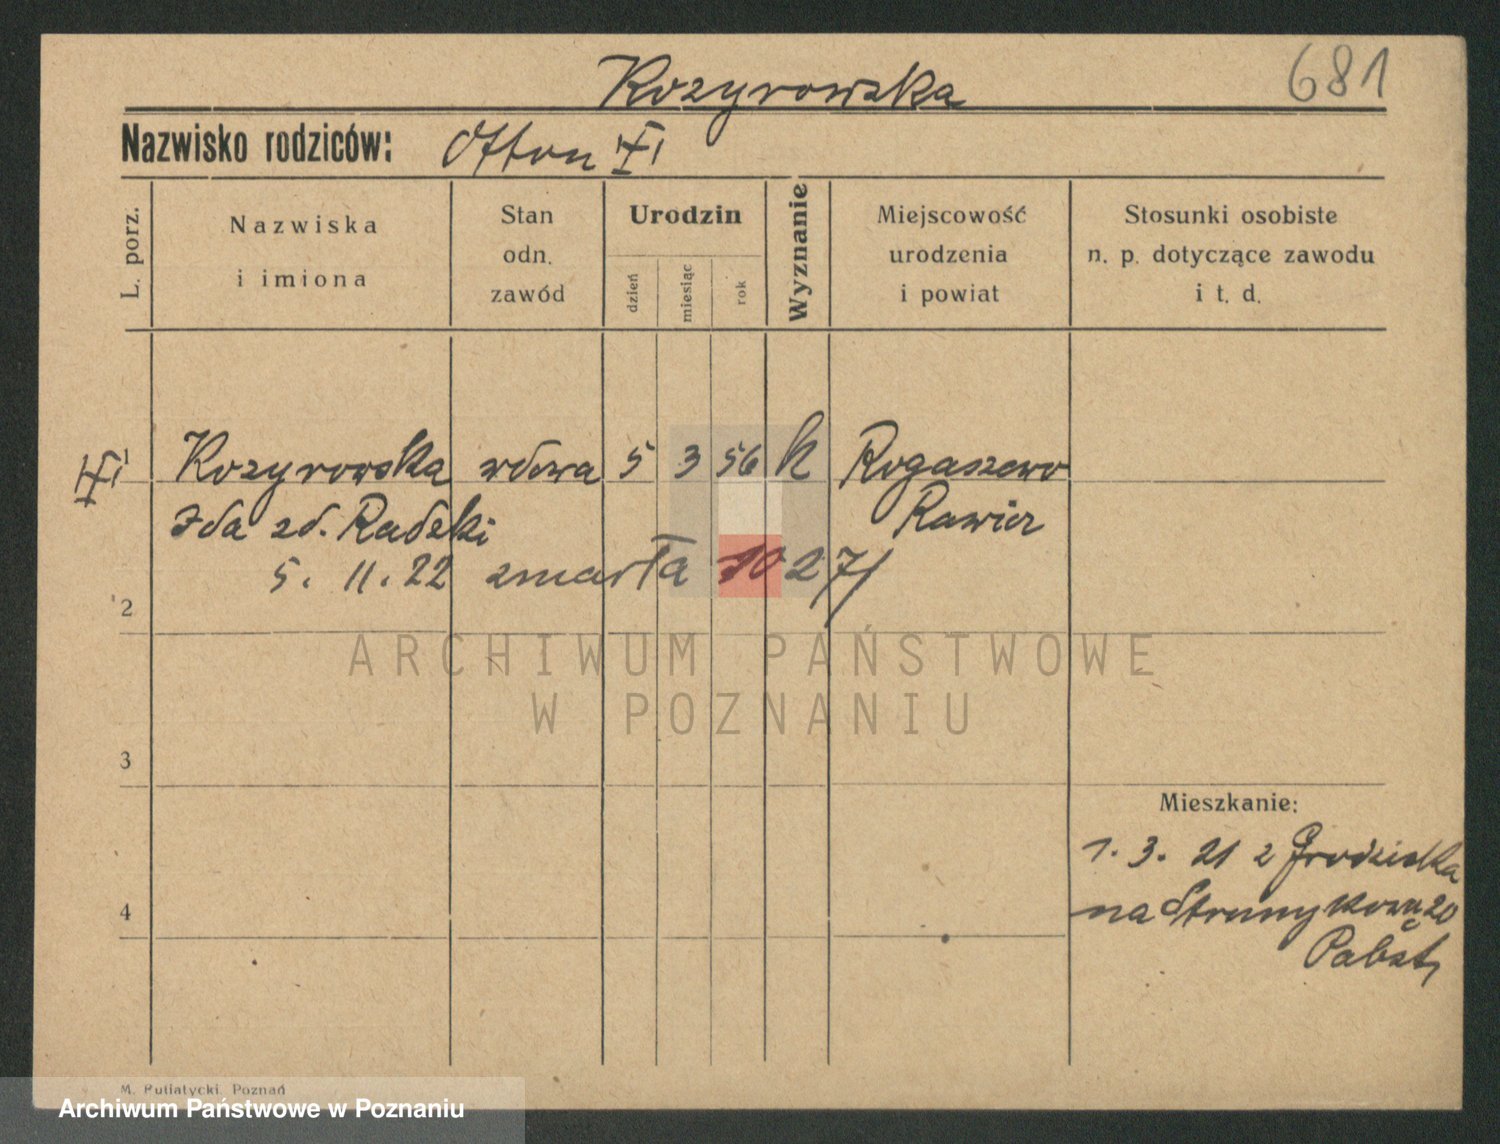 Kozyrowska
681
Nazwisko rodziców: Otton
L. porz.
Nazwiska
i imiona
Stan
odn.
zawód
Urodzin
dzień
miesiąc
rok
Wyznanie
Miejscowość
urodzenia
i powiat
Stosunki osobiste
n. p. dotyczące zawodu
i t. d.
1 Kozyrowska wdowa 5 3 56 k Rogaszewo
Ida zd. Radeki Rawicz
5. 11. 22 zmarła 1027/
2
3
4
Mieszkanie:
1. 3. 21 z Grodziska
na Strumykową 20
Pabst
M. Putiatycki, Poznań
ARCHIWUM PAŃSTWOWE
W POZNANIU
Archiwum Państwowe w Poznaniu